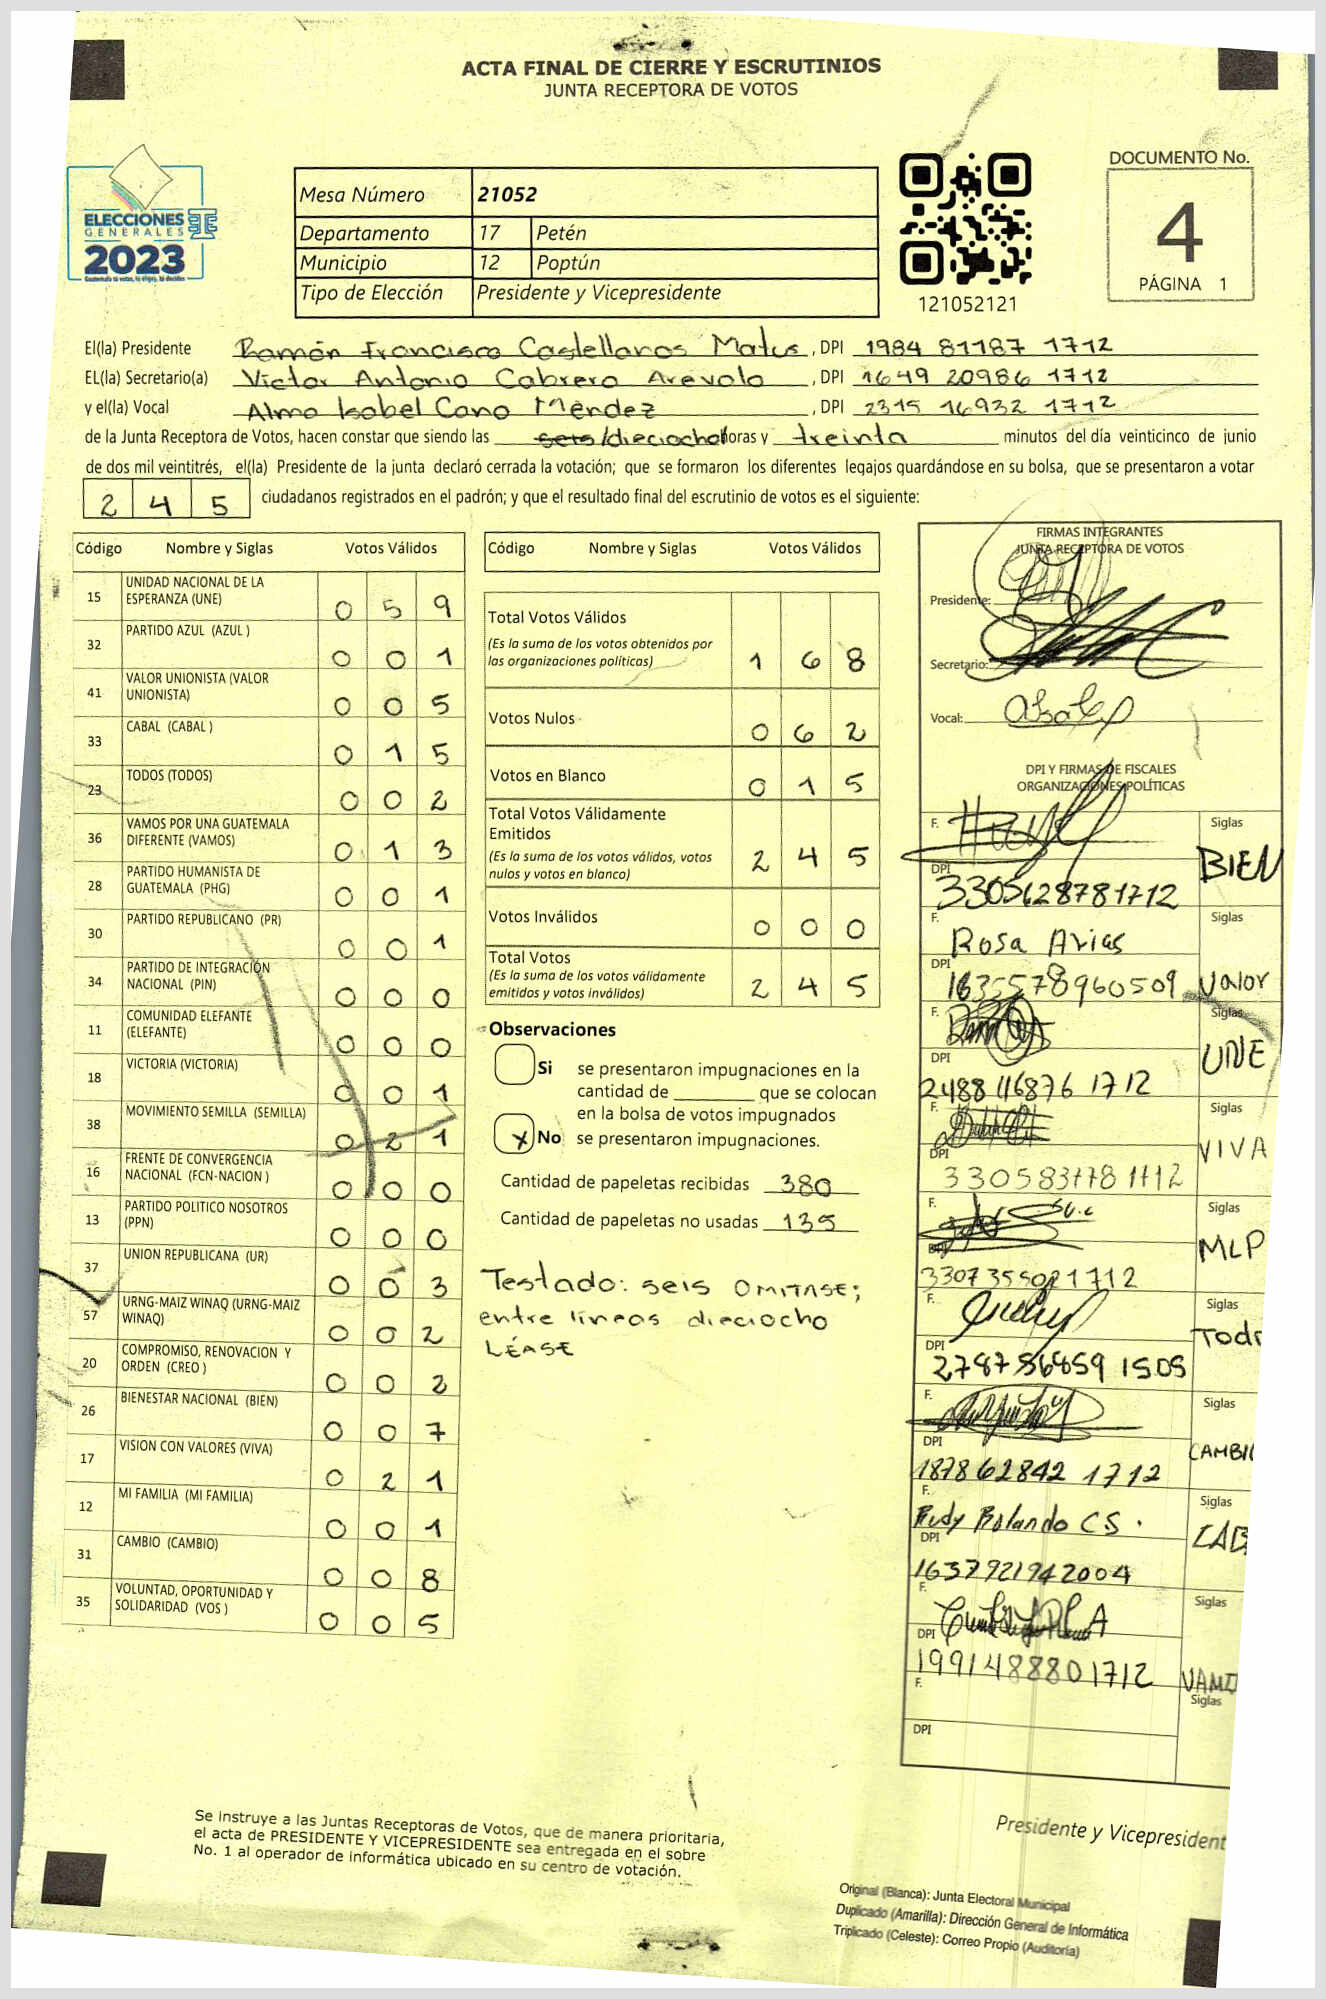 ACTA FINAL DE CIERRE Y ESCRUTINIOS
JUNTA RECEPTORA DE VOTOS
ELECCIONES
GENERALES
2023
Guatemala tú votas, tú eliges, tú decides
Mesa Número 21052
Departamento 17 Petén
Municipio 12 Poptún
Tipo de Elección Presidente y Vicepresidente
121052121
DOCUMENTO No.
4
PÁGINA 1
El(la) Presidente Ramón Francisco Castellanos Matus, DPI 1984 81187 1712
EL(la) Secretario(a) Victor Antonio Cabrera Arevalo, DPI 1649 20986 1712
y el(la) Vocal Alma Isabel Cano Méndez, DPI 2315 16932 1712
de la Junta Receptora de Votos, hacen constar que siendo las seis/dieciocho horas y treinta minutos del día veinticinco de junio
de dos mil veintitrés, el(la) Presidente de la junta declaró cerrada la votación; que se formaron los diferentes legajos guardándose en su bolsa, que se presentaron a votar
245 ciudadanos registrados en el padrón; y que el resultado final del escrutinio de votos es el siguiente:
Código Nombre y Siglas Votos Válidos
15 UNIDAD NACIONAL DE LA ESPERANZA (UNE) 0 5 9
32 PARTIDO AZUL (AZUL ) 0 0 1
41 VALOR UNIONISTA (VALOR UNIONISTA) 0 0 5
33 CABAL (CABAL ) 0 1 5
23 TODOS (TODOS) 0 0 2
36 VAMOS POR UNA GUATEMALA DIFERENTE (VAMOS) 0 1 3
28 PARTIDO HUMANISTA DE GUATEMALA (PHG) 0 0 1
30 PARTIDO REPUBLICANO (PR) 0 0 1
34 PARTIDO DE INTEGRACIÓN NACIONAL (PIN) 0 0 0
11 COMUNIDAD ELEFANTE (ELEFANTE) 0 0 0
18 VICTORIA (VICTORIA) 0 0 1
38 MOVIMIENTO SEMILLA (SEMILLA) 0 2 1
16 FRENTE DE CONVERGENCIA NACIONAL (FCN-NACION ) 0 0 0
13 PARTIDO POLITICO NOSOTROS (PPN) 0 0 0
37 UNION REPUBLICANA (UR) 0 0 3
57 URNG-MAIZ WINAQ (URNG-MAIZ WINAQ) 0 0 2
20 COMPROMISO, RENOVACION Y ORDEN (CREO ) 0 0 2
26 BIENESTAR NACIONAL (BIEN) 0 0 7
17 VISION CON VALORES (VIVA) 0 2 1
12 MI FAMILIA (MI FAMILIA) 0 0 1
31 CAMBIO (CAMBIO) 0 0 8
35 VOLUNTAD, OPORTUNIDAD Y SOLIDARIDAD (VOS ) 0 0 5
Código Nombre y Siglas Votos Válidos
Total Votos Válidos 1 6 8
(Es la suma de los votos obtenidos por
las organizaciones políticas)
Votos Nulos 0 6 2
Votos en Blanco 0 1 5
Total Votos Válidamente
Emitidos
(Es la suma de los votos válidos, votos
nulos y votos en blanco) 2 4 5
Votos Inválidos 0 0 0
Total Votos
(Es la suma de los votos válidamente
emitidos y votos inválidos) 2 4 5
Observaciones
Si se presentaron impugnaciones en la
cantidad de ________ que se colocan
en la bolsa de votos impugnados
X No se presentaron impugnaciones.
Cantidad de papeletas recibidas 380
Cantidad de papeletas no usadas 135
Testado: seis OMITASE;
entre líneas dieciocho
LÉASE
FIRMAS INTEGRANTES
JUNTA RECEPTORA DE VOTOS
Presidente:
Secretario:
Vocal:
DPI Y FIRMAS DE FISCALES
ORGANIZACIONES POLÍTICAS
F. Siglas
BIEN
DPI 3305628781712
F. Rosa Arias Siglas
DPI 1635578960509 Valor
F. Siglas
UNE
DPI 2488116876 1712
F. Siglas
VIVA
DPI
F. Siglas
MLP
DPI 3307355021712
F. Siglas
DPI 278756859 1505
F. Siglas
DPI 187862842 1712
F. Rudy Rolando C S. Siglas
DPI 1637921942004
F. Siglas
DPI 1991488801712
F. Siglas
DPI
Se instruye a las Juntas Receptoras de Votos, que de manera prioritaria,
el acta de PRESIDENTE Y VICEPRESIDENTE sea entregada en el sobre
No. 1 al operador de informática ubicado en su centro de votación.
Presidente y Vicepresident
Original (Blanca): Junta Electoral Municipal
Duplicado (Amarilla): Dirección General de Informática
Triplicado (Celeste): Correo Propio (Auditoría)